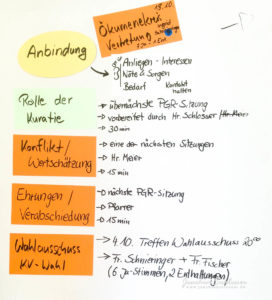 19.10.
Ökumenekreis
Vertretung
Anbindung
Anliegen - Interessen
Nöte & Sorgen
Bedarf
Kontakt
halten
Rolle der
Kuratie
→ übernächste PGR-Sitzung
→ vorbereitet durch Hr. Schlosser
→ 30 min
Konflikt/
Wertschätzung
→ eine der nächsten Sitzungen
→ Hr. Meier
→ 15 min
Ehrungen /
Verabschiedung
→ nächste PGR-Sitzung
→ Pfarrer
→ 15 min
Wahlausschuss
KV-Wahl
→ 4.10. Treffen Wahlausschuss 20⁰⁰
→ Fr. Schnieringer + Fr. Fischer
(6 Ja-Stimmen, 2 Enthaltungen)